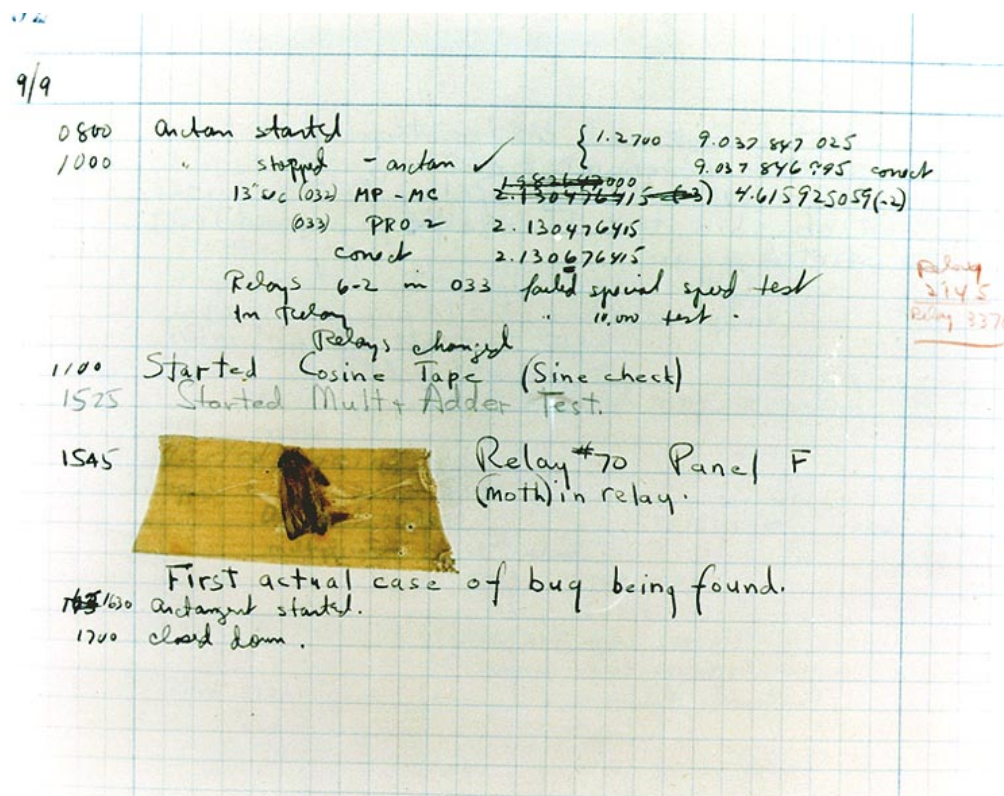 9/9
0800 arctan started { 1.2700 9.037 847 025
1000 " stopped - arctan ✓ 9.037 846 995 correct
13"uc (032) MP - MC 2.130476415 (-3) 4.615925059(-2)
(033) PRO 2 2.130476415
correct 2.130676415
Relays 6-2 in 033 failed special speed test
In Relay " 10.000 test.
Relay
2145
Relay 337
Relays changed
1100 Started Cosine Tape (Sine check)
1525 Started Mult+Adder Test.
1545 Relay #70 Panel F
(moth) in relay.
First actual case of bug being found.
1630 arctangent started.
1700 closed down.